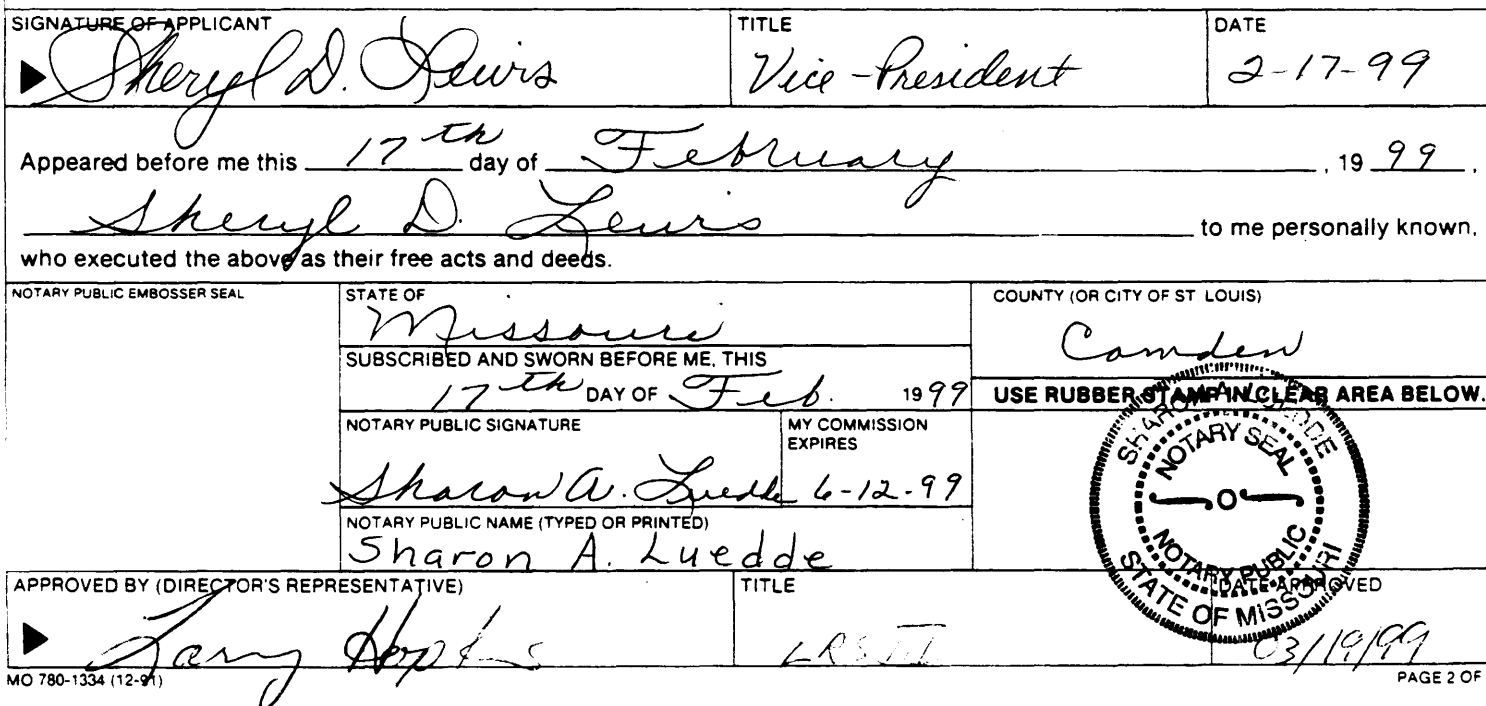 SIGNATURE OF APPLICANT TITLE DATE
Sheryl D. Lewis Vice-President 2-17-99
Appeared before me this 17th day of February, 19 99,
Sheryl D. Lewis to me personally known,
who executed the above as their free acts and deeds.
NOTARY PUBLIC EMBOSSER SEAL STATE OF COUNTY (OR CITY OF ST. LOUIS)
Missouri Camden
SUBSCRIBED AND SWORN BEFORE ME, THIS
17th DAY OF Feb. 1999 USE RUBBER STAMP IN CLEAR AREA BELOW.
NOTARY PUBLIC SIGNATURE MY COMMISSION EXPIRES
Sharon A. Luedde 6-12-99
NOTARY PUBLIC NAME (TYPED OR PRINTED)
Sharon A. Luedde
SHARON A. LUEDDE
NOTARY SEAL
NOTARY PUBLIC
STATE OF MISSOURI
APPROVED BY (DIRECTOR'S REPRESENTATIVE) TITLE DATE APPROVED
Larry Hopkins LRS III 03/19/99
MO 780-1334 (12-91) PAGE 2 OF